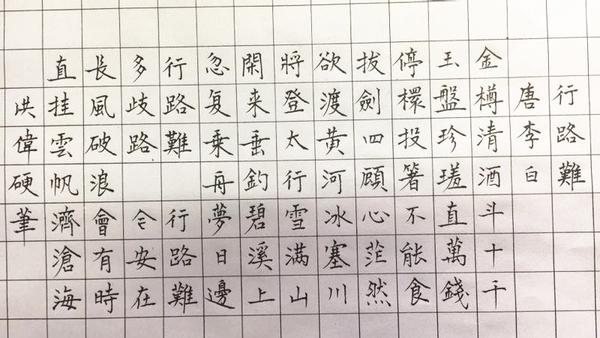 行路難
唐李白
金樽清酒斗十千
玉盤珍瑳直萬錢
停投箸不能食
拔劍四顧心茫然
欲渡黃河冰塞川
將登太行雪滿山
閑來垂釣碧溪上
忽复乘舟夢日邊
行路難 行路難
多歧路 今安在
長風破浪會有時
直挂雲帆濟滄海
洪偉硬筆